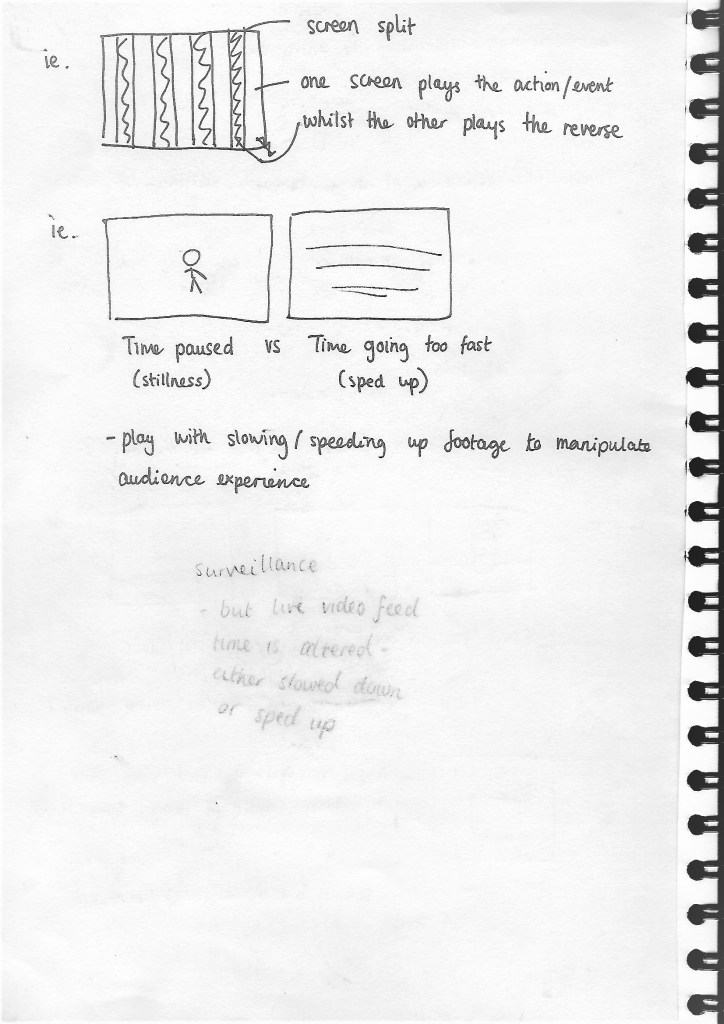 screen split
ie.
one screen plays the action/event
whilst the other plays the reverse
ie.
Time paused vs Time going too fast
(stillness) (sped up)
- play with slowing/speeding up footage to manipulate
audience experience
surveillance
- but live video feed
time is altered -
either slowed down
or sped up